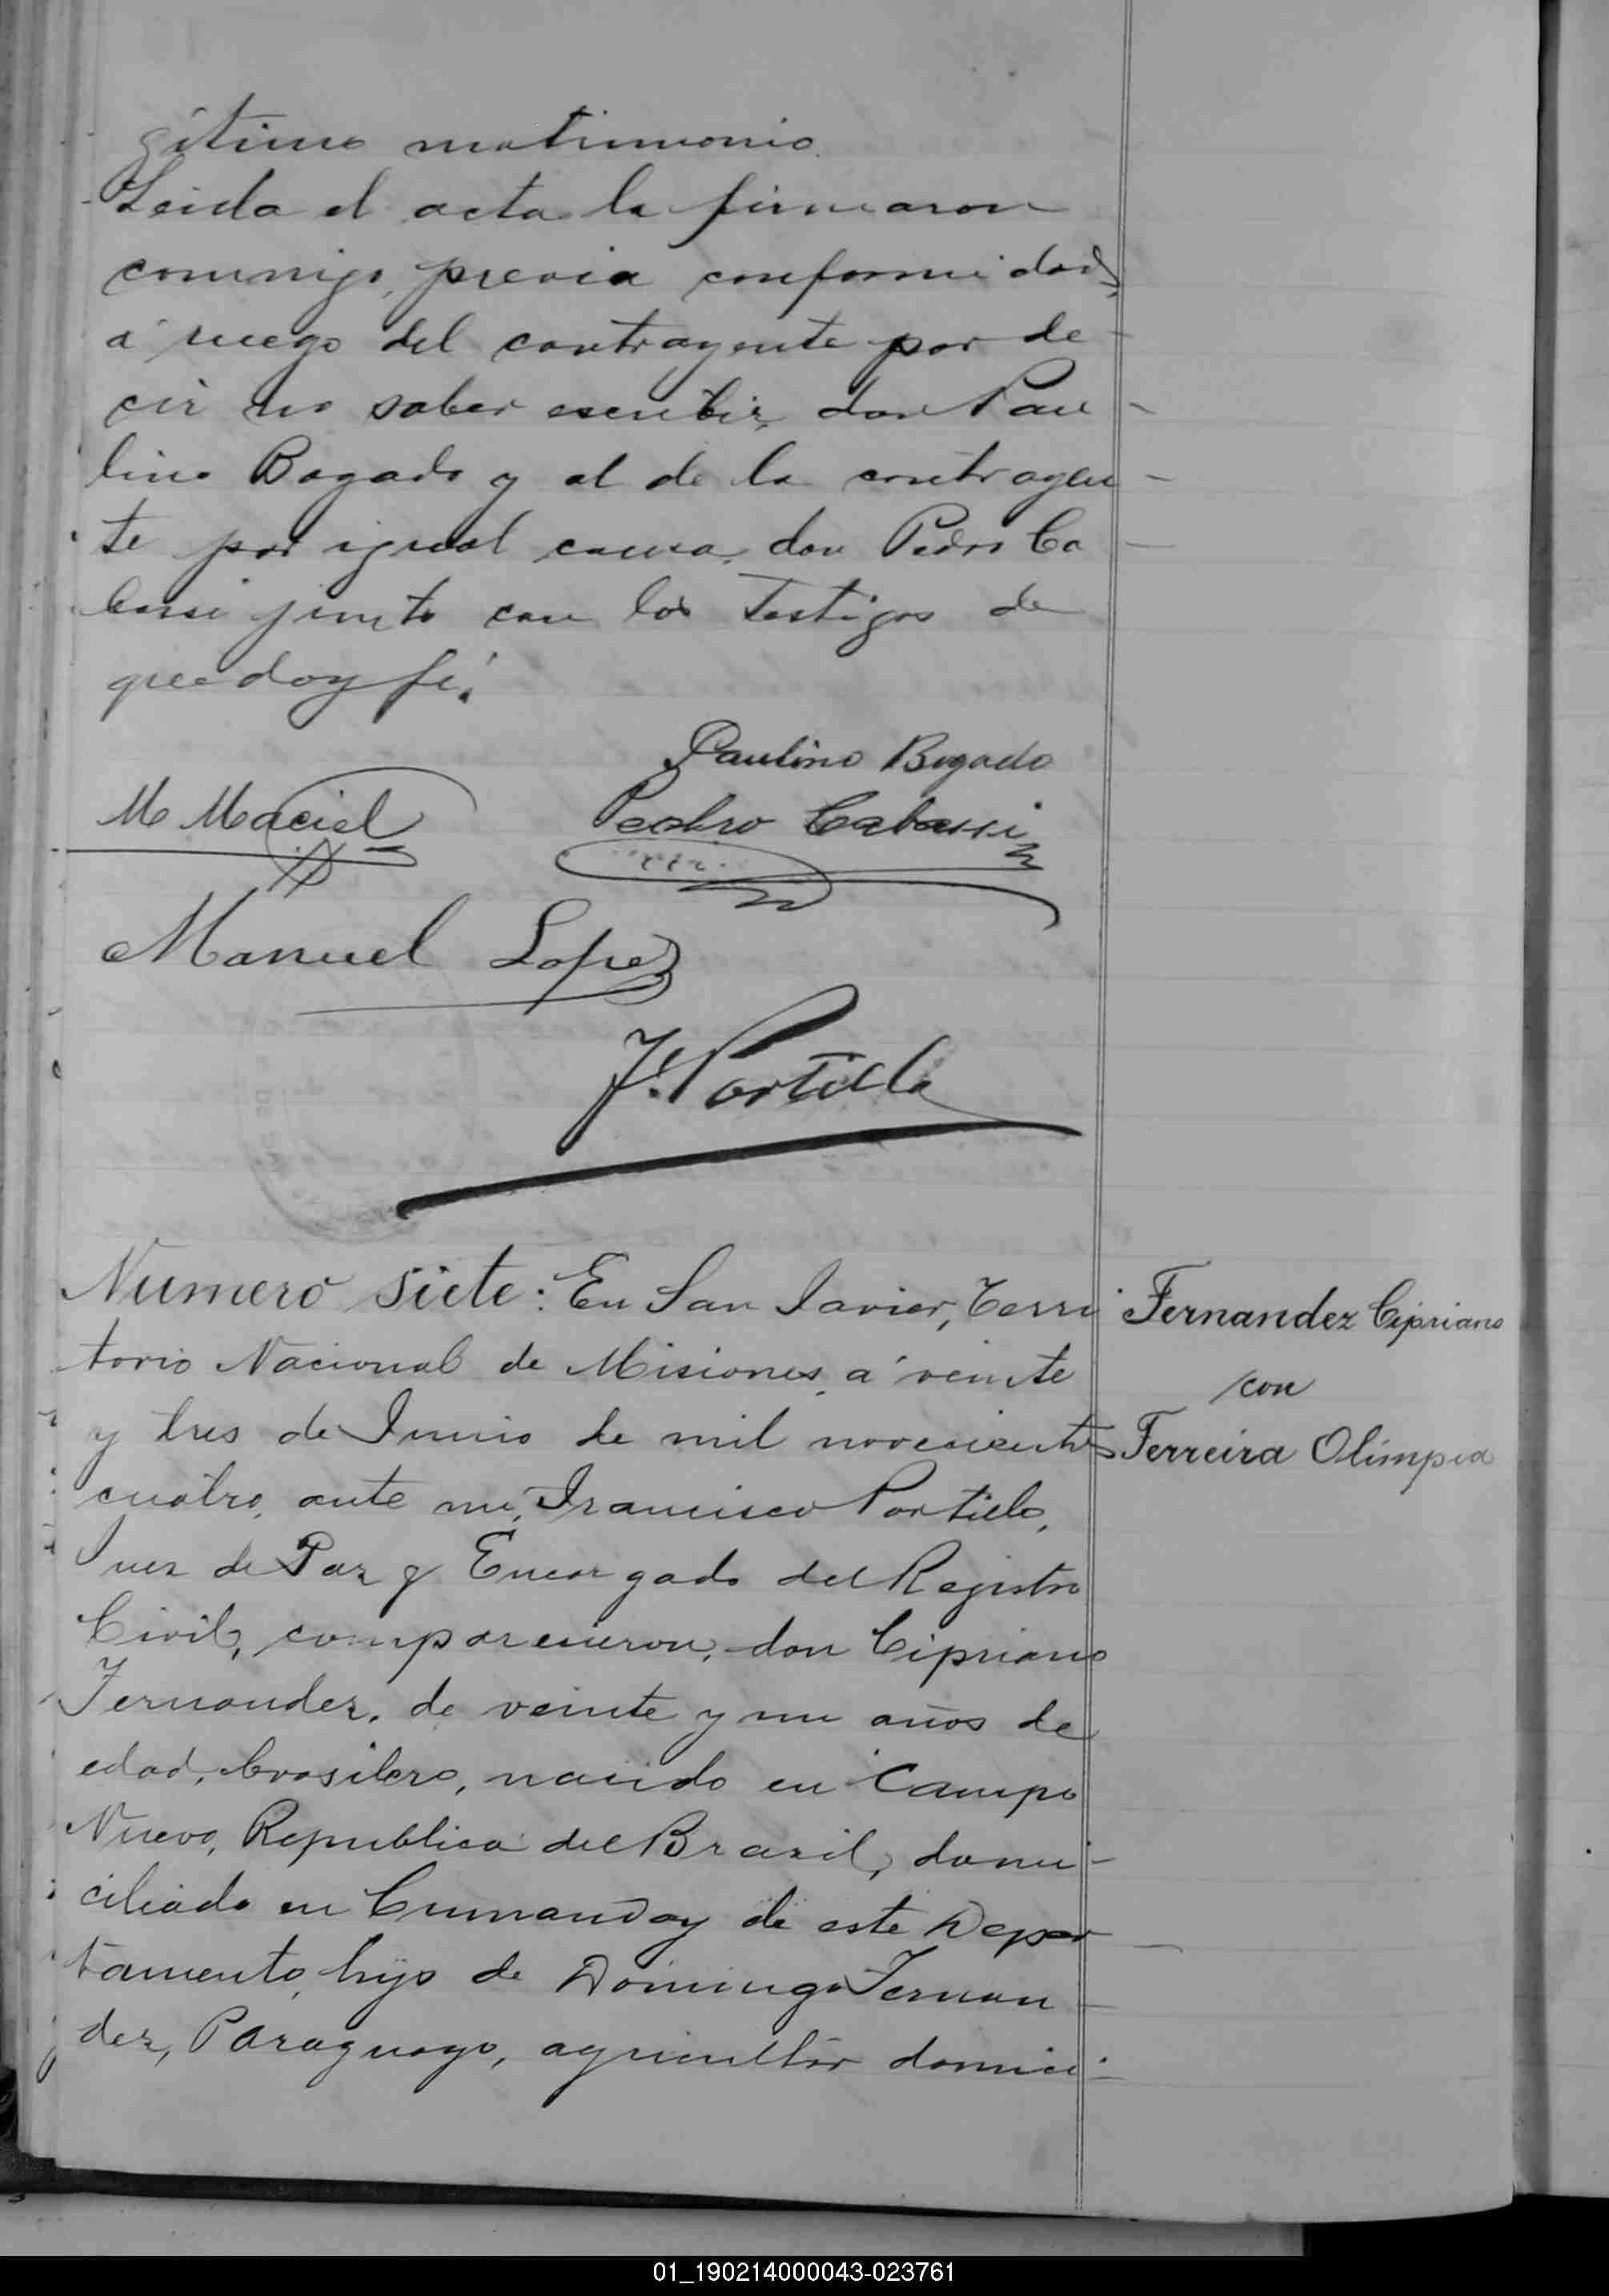 gítimo matrimonio.
Leida el acta la firmaron
conmigo, previa conformidad,
á ruego del contrayente por de
cir no saber escribir, don Pau
lino Bogado y al de la contrayen
te por igual causa, don Pedro Ca
bassi junto con los testigos de
que doy fé.
Paulino Bogado
M Maciel
Pedro Cabassi
Manuel Lopez
F. Portillo
Numero siete: En San Javier, Terri
torio Nacional de Misiones, á veinte
y tres de Junio de mil novecientos
cuatro, ante mi, Francisco Portillo,
Juez de Paz y Encargado del Registro
Civil, comparecieron, don Cipriano
Fernandez, de veinte y un años de
edad, brasilero, nacido en Campo
Nuevo, Republica del Brazil, domi
ciliado en Cumanday de este Depar
tamento, hijo de Domingo Fernan
dez, Paraguayo, agricultor domici
Fernandez Cipriano
con
Ferreira Olimpia
01_190214000043-023761